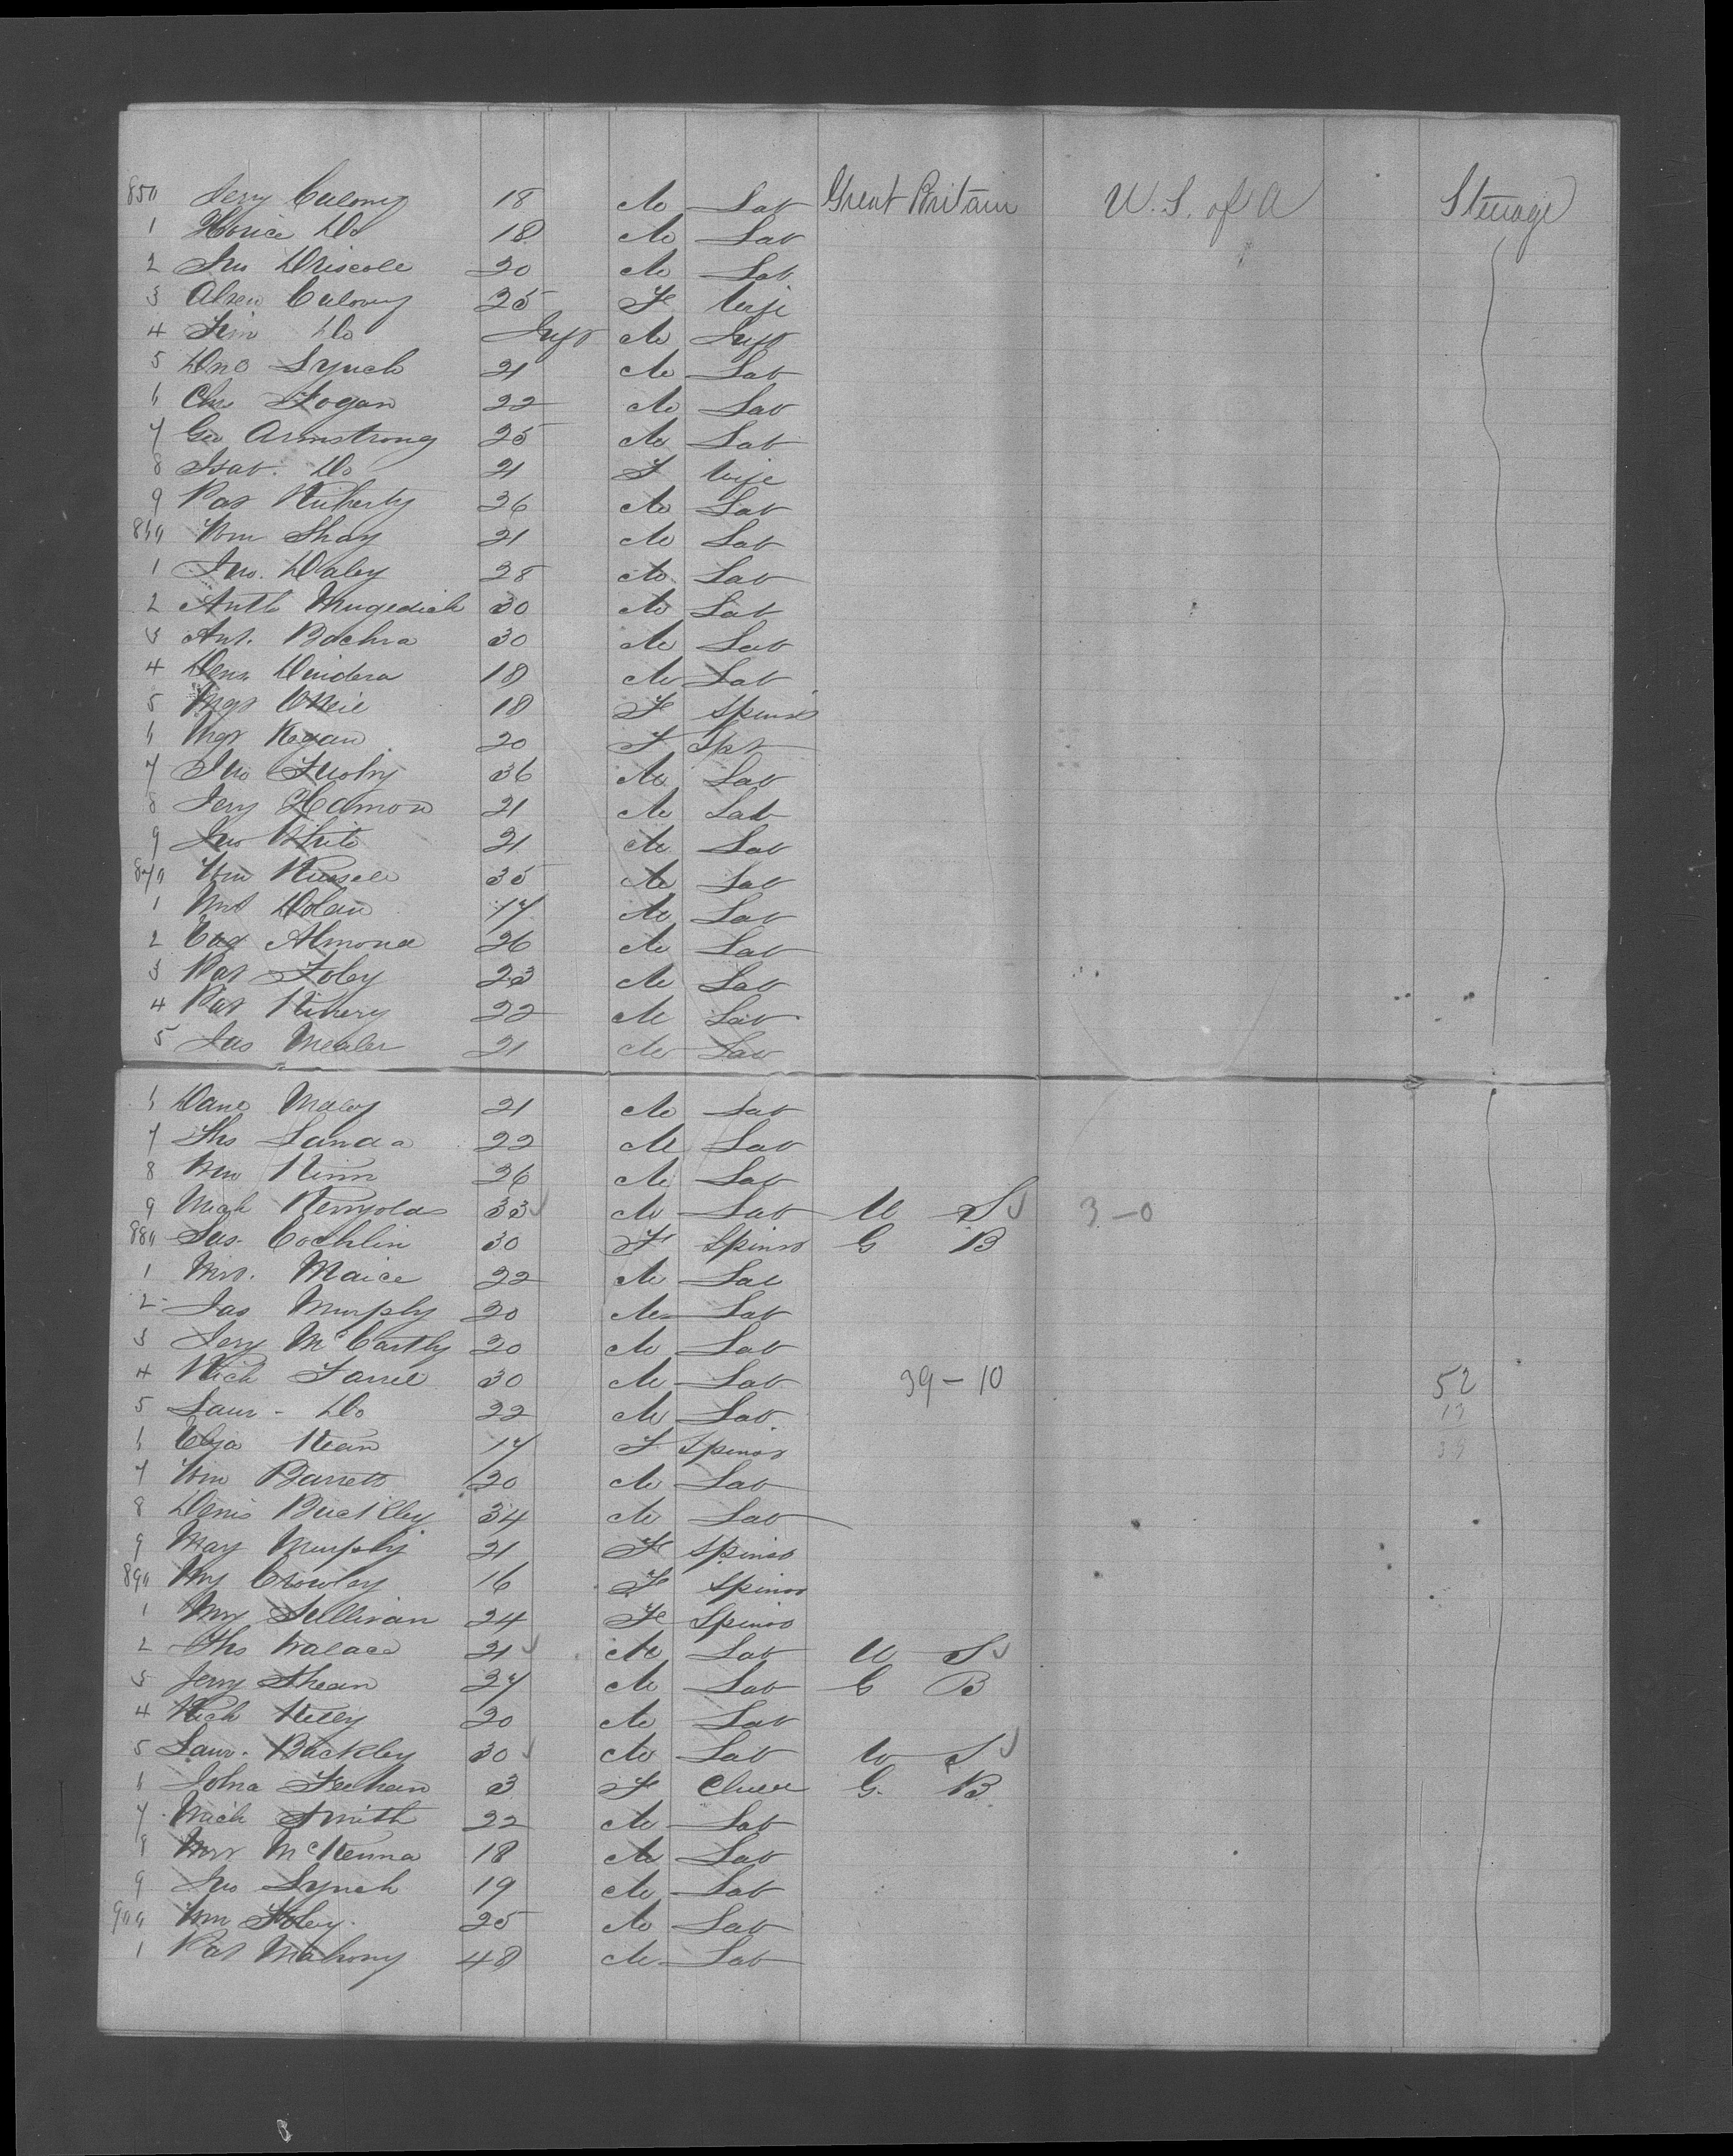 850 Jerry Calony 18 M Lab Great Britain U.S. of A Steerage
1 Horice Do 18 M Lab
2 Jno Driscole 20 M Lab
3 Calony 25 F Wife
4 Do Inft M Inft
5 Lynch 21 M Lab
6 Chs Fogan 22 M Lab
7 Geo Armstrong 25 M Lab
8 Isab. Do 21 F Wife
9 Pat 26 M Lab
860 Wm Shay 21 M Lab
1 Jno. Daley 28 M Lab
2 Anth Mugedich 30 M Lab
3 Ant. Bachra 30 M Lab
4 Denn 18 M Lab
5 Mgt 18 F Spinst
6 Mgt Kegan 20 F Spt
7 Jno 36 M Lab
8 Jerry Hamon 21 M Lab
9 Jno White 21 M Lab
870 Wm Russele 35 M Lab
1 Dolan 17 M Lab
2 Almona 26 M Lab
3 Pat Foley 23 M Lab
4 Pat 22 M Lab
5 Jas Mealer 21 M Lab
6 Danl 21 M Lab
7 Ths 22 M Lab
8 26 M Lab
9 Mich Kerryolds 33 M Lab U S 3-0
880 Cochlin 30 F Spinst G B
1 Maice 22 M Lab
2 Jas Murphy 20 M Lab
3 Jery McCarthy 20 M Lab
4 Rich Farrel 30 M Lab 39-10 52
5 Laur - Do 22 M Lab 13
6 Eliza Kean 17 F Spinst 39
7 Wm Barrett 20 M Lab
8 Denis Buckley 34 M Lab
9 Mary Murphy 21 F Spinst
890 My Crowley 16 F Spinst
1 Mry Sullivan 24 F Spinst
2 Ths Walace 21 M Lab U S
3 Jerry Shean 27 M Lab G B
4 Rich Kelly 20 M Lab
5 Laur. Buckley 30 M Lab U S
6 Johna Feehan 3 F G. B
7 Mich Smith 22 M Lab
8 McKenna 18 M Lab
9 Jno Lynch 19 M Lab
900 Wm Foley 25 M Lab
1 Pat Mahony 48 M Lab